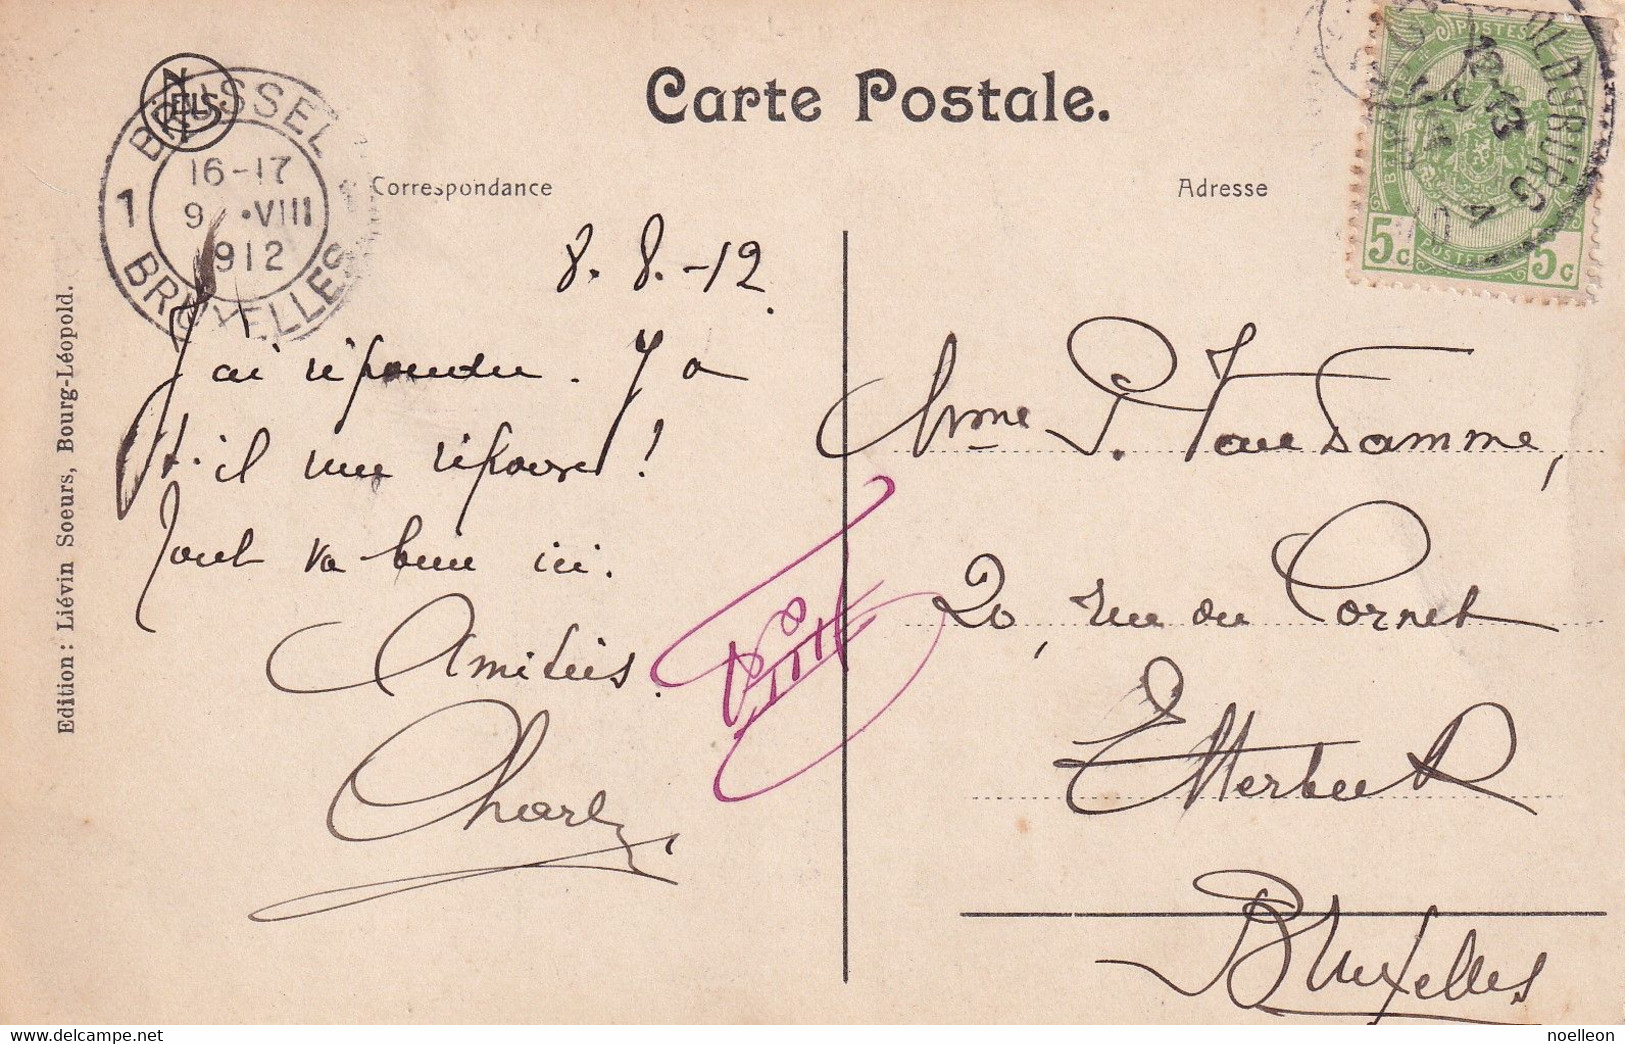 Carte Postale.
NELS
BRUSSEL
16-17
9 · VIII
1912
1
BRUXELLES
Correspondance
Adresse
POSTES
BELGIQUE
5c
5c
POSTERIJEN
8. 8. -12.
J'ai répondu. Y a
t-il une réponse!
Tout va bien ici.
Amitiés.
Charly
Mme P. Van Damme,
20, rue du Cornet
Etterbeek
Bruxelles
Edition: Liévin Soeurs, Bourg-Léopold.
www.delcampe.net
noelleon